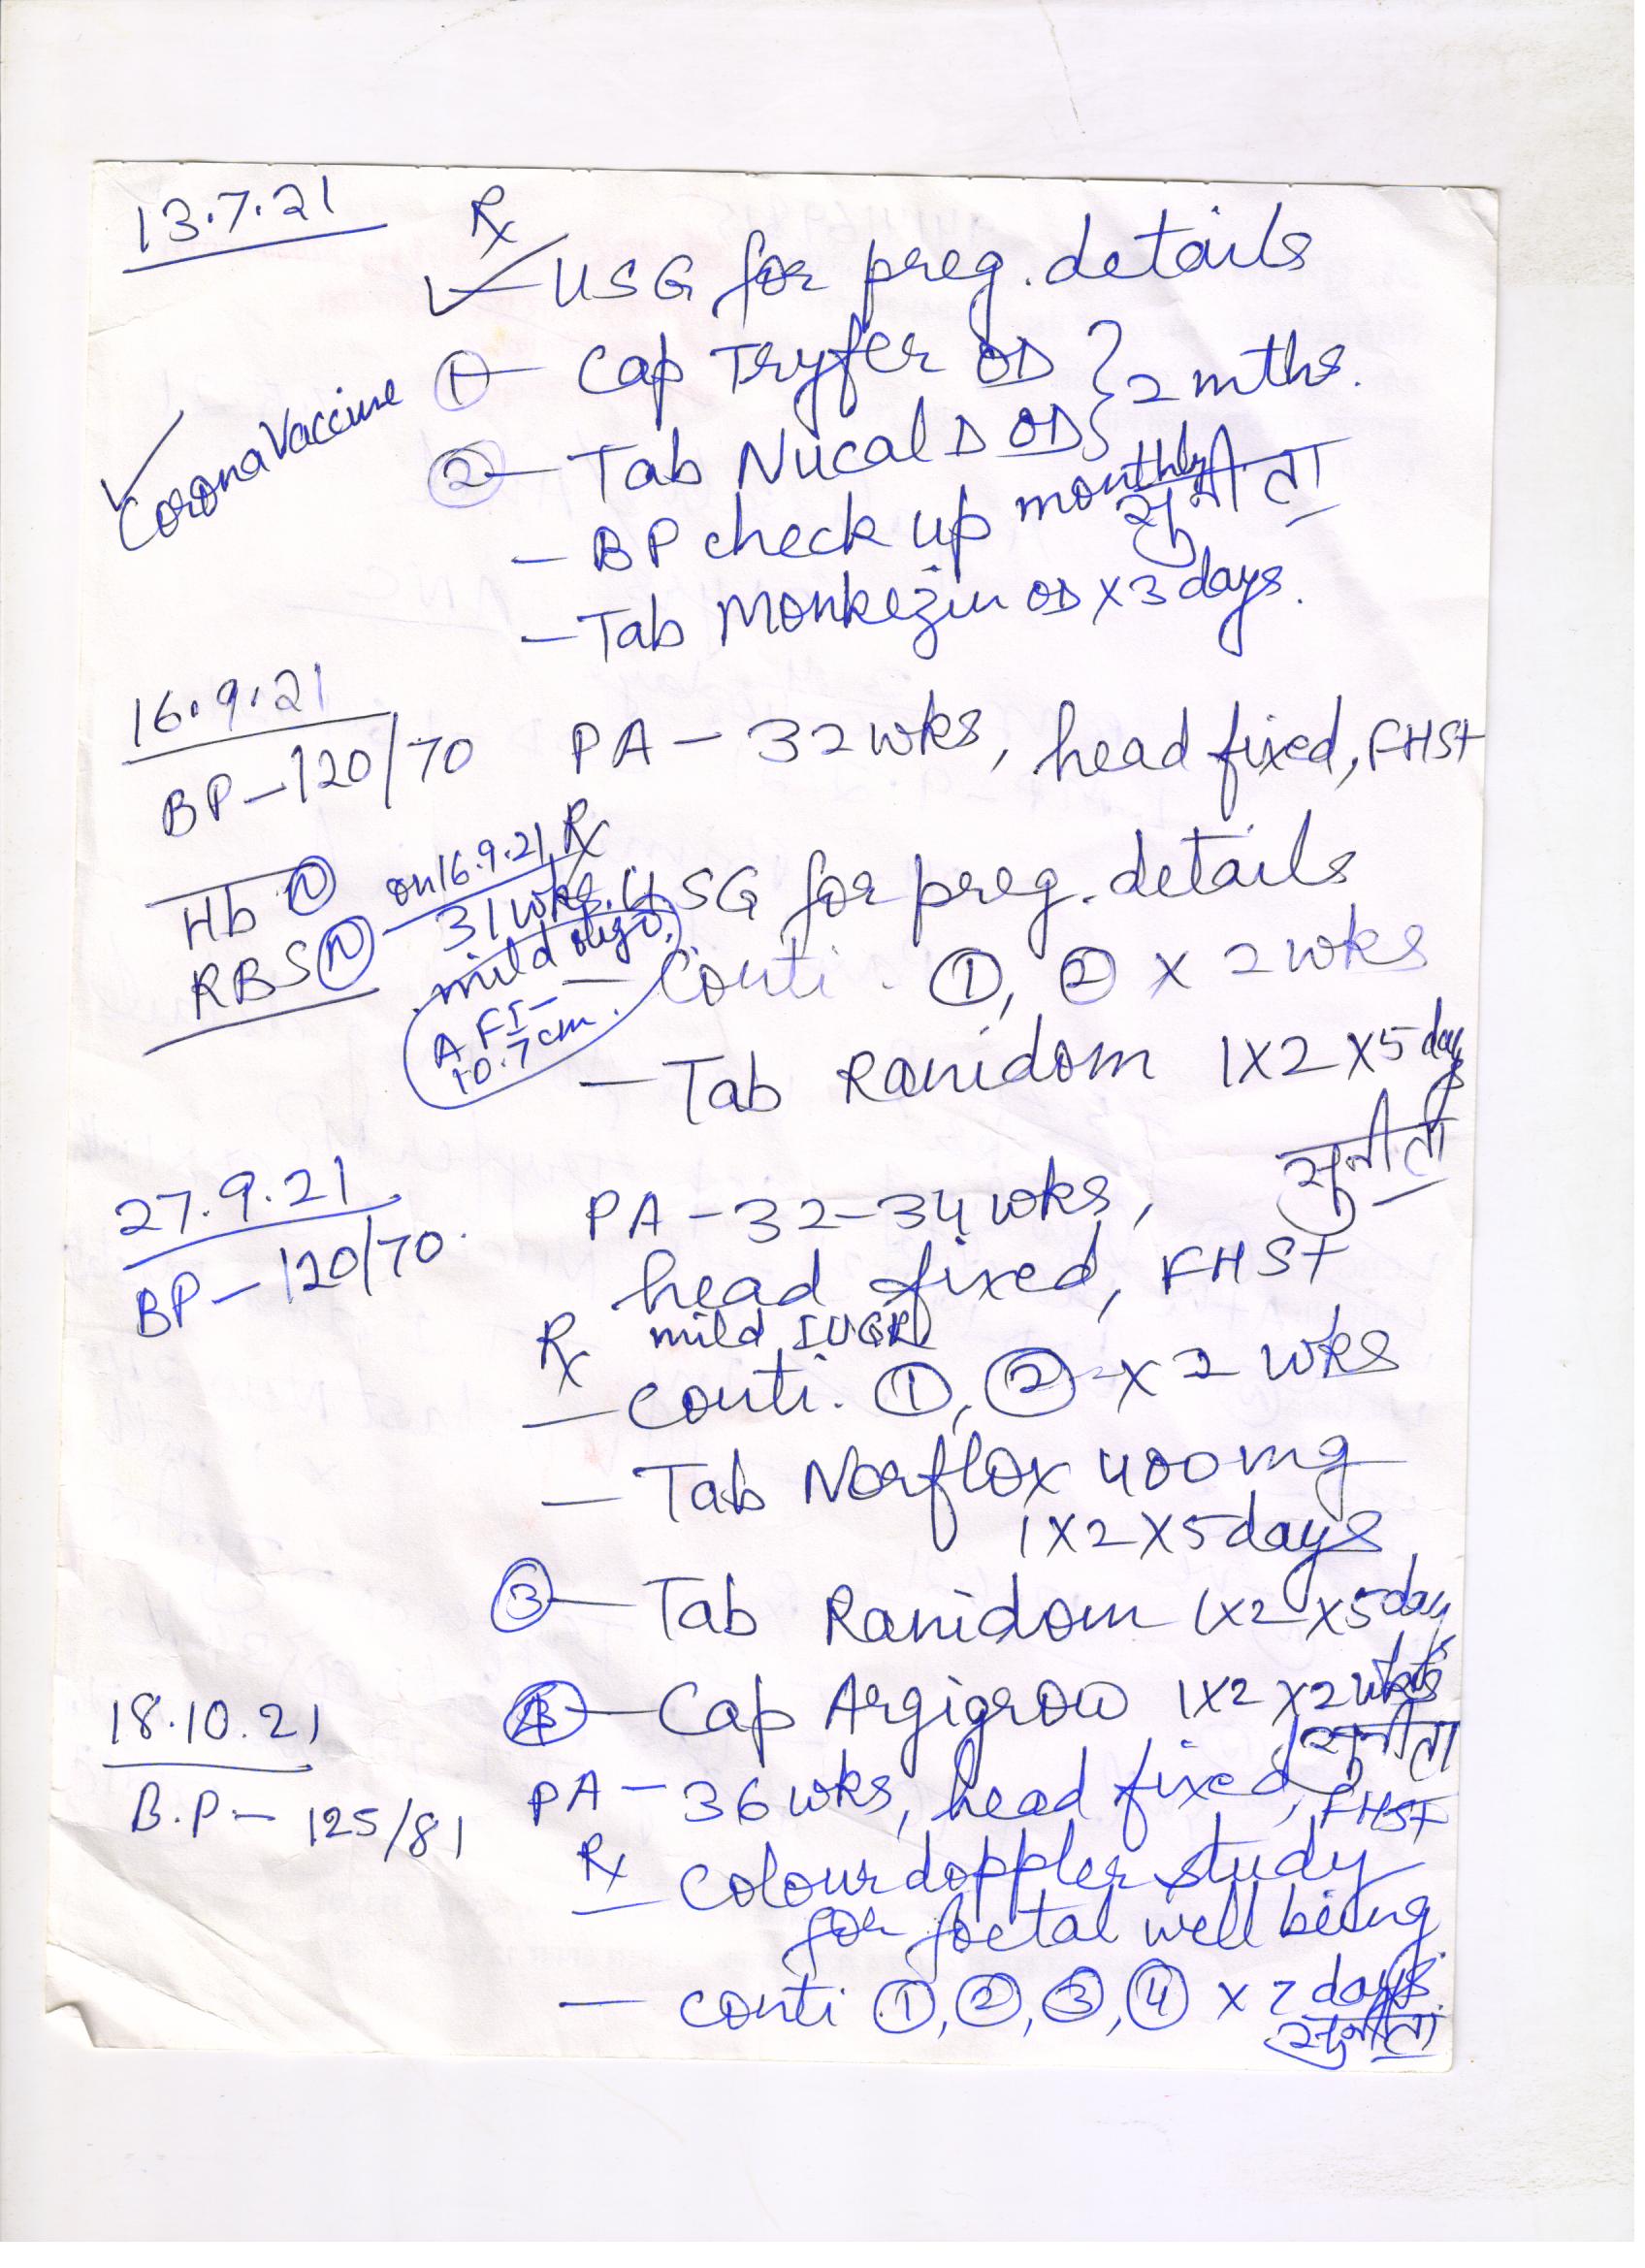 13.7.21
Rx
USG for preg. details
① – Cap Tryfer OD } 2 mths.
② – Tab Nucal D OD
Corona Vaccine
– BP check up monthly
सुनीता
– Tab Monkezin OD x 3 days.
16.9.21
BP – 120/70 PA – 32 wks, head fixed, FHS+
Rx
Hb Ⓝ
RBS Ⓝ
on 16.9.21
31 wks.
mild oligo.
AFI –
10.7 cm.
USG for preg. details
– Conti. ①, ② x 2 wks
– Tab Ranidom 1x2 x5 day
सुनीता
27.9.21
BP – 120/70.
PA – 32–34 wks,
head fixed, FHS+
mild IUGR
Rx
– conti. ①, ② x 2 wks
– Tab Norflox 400 mg
1x2 x5 days
③ – Tab Ranidom 1x2 x5 day
④ – Cap Argigrow 1x2 x2 wks
सुनीता
18.10.21
B.P – 125/81
PA – 36 wks, head fixed, FHS+
Rx
– colour doppler study
for foetal well being
– conti ①, ②, ③, ④ x 7 days.
सुनीता